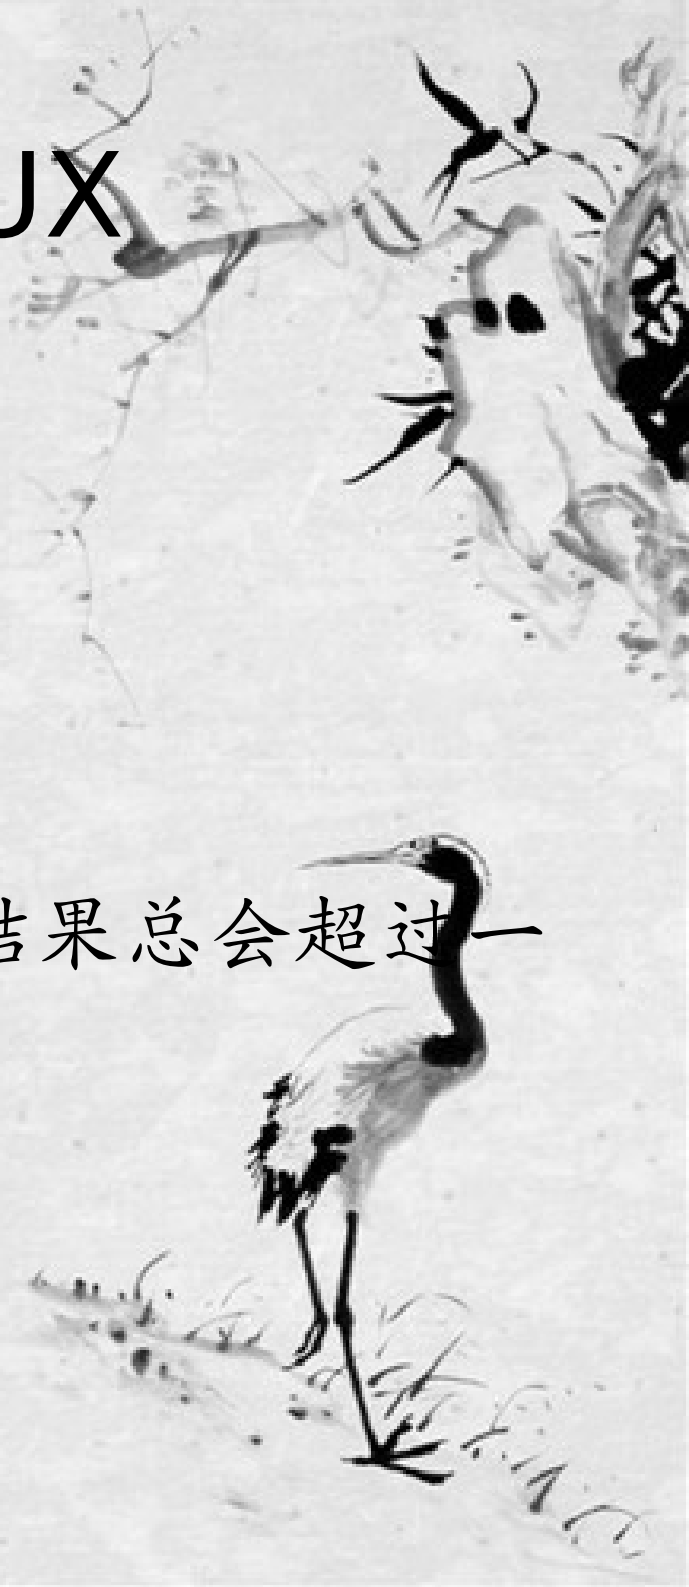 UX
结果总会超过一